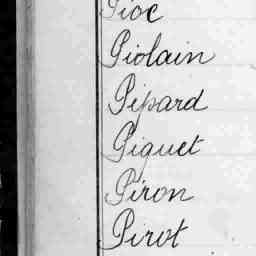 Pioc
Piolain
Pipard
Piquet
Piron
Pirot